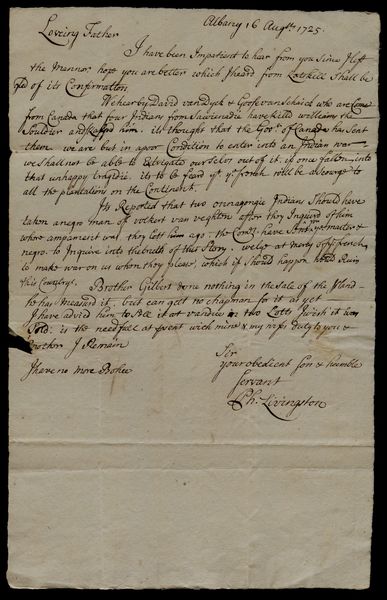 Albany 16 Augst 1725.
Loveing Father
I have been Impatient to hear from you Since I left
the Mannor, hope you are better which I heard from Catskill Shall be
of its Confirmation
We hear by David van Dyck & van Schaick who are Come
from Canada that four Indians from have kill'd william the
Souldier and him. is thought that the Govr. of Canada has Sent
them. we are but in apoor Condition to enter into an Indian war
we shall not be able to Extricate ourselves out of it. if once fallen into
that unhappy its to be feard yt. ye french will be
all the plantations on the Continent.
Its Reported that two onnagongie Indians Should have
taken anegro man of volkert van veghten after they Inquird of him
whose he was they lett him ago. the have Sent for ye master &
negro to Inquire into the truth of this Story. we ly at mercy of ye french
to make war on us when they please, which if Should happen Ruin
this Country.
Brother Gilbert done nothing in the Sale of the Hand
he has measurd it, but can gett no chapman for it as yet
I have advisd him to Sell it at vandue in two Lotts I wish it
Sold: is the needfull at present with mine & my wifes duty to you &
mother I Remain
Sir
your obedient Son & humble
Servant
Ph: Livingston
I have no more